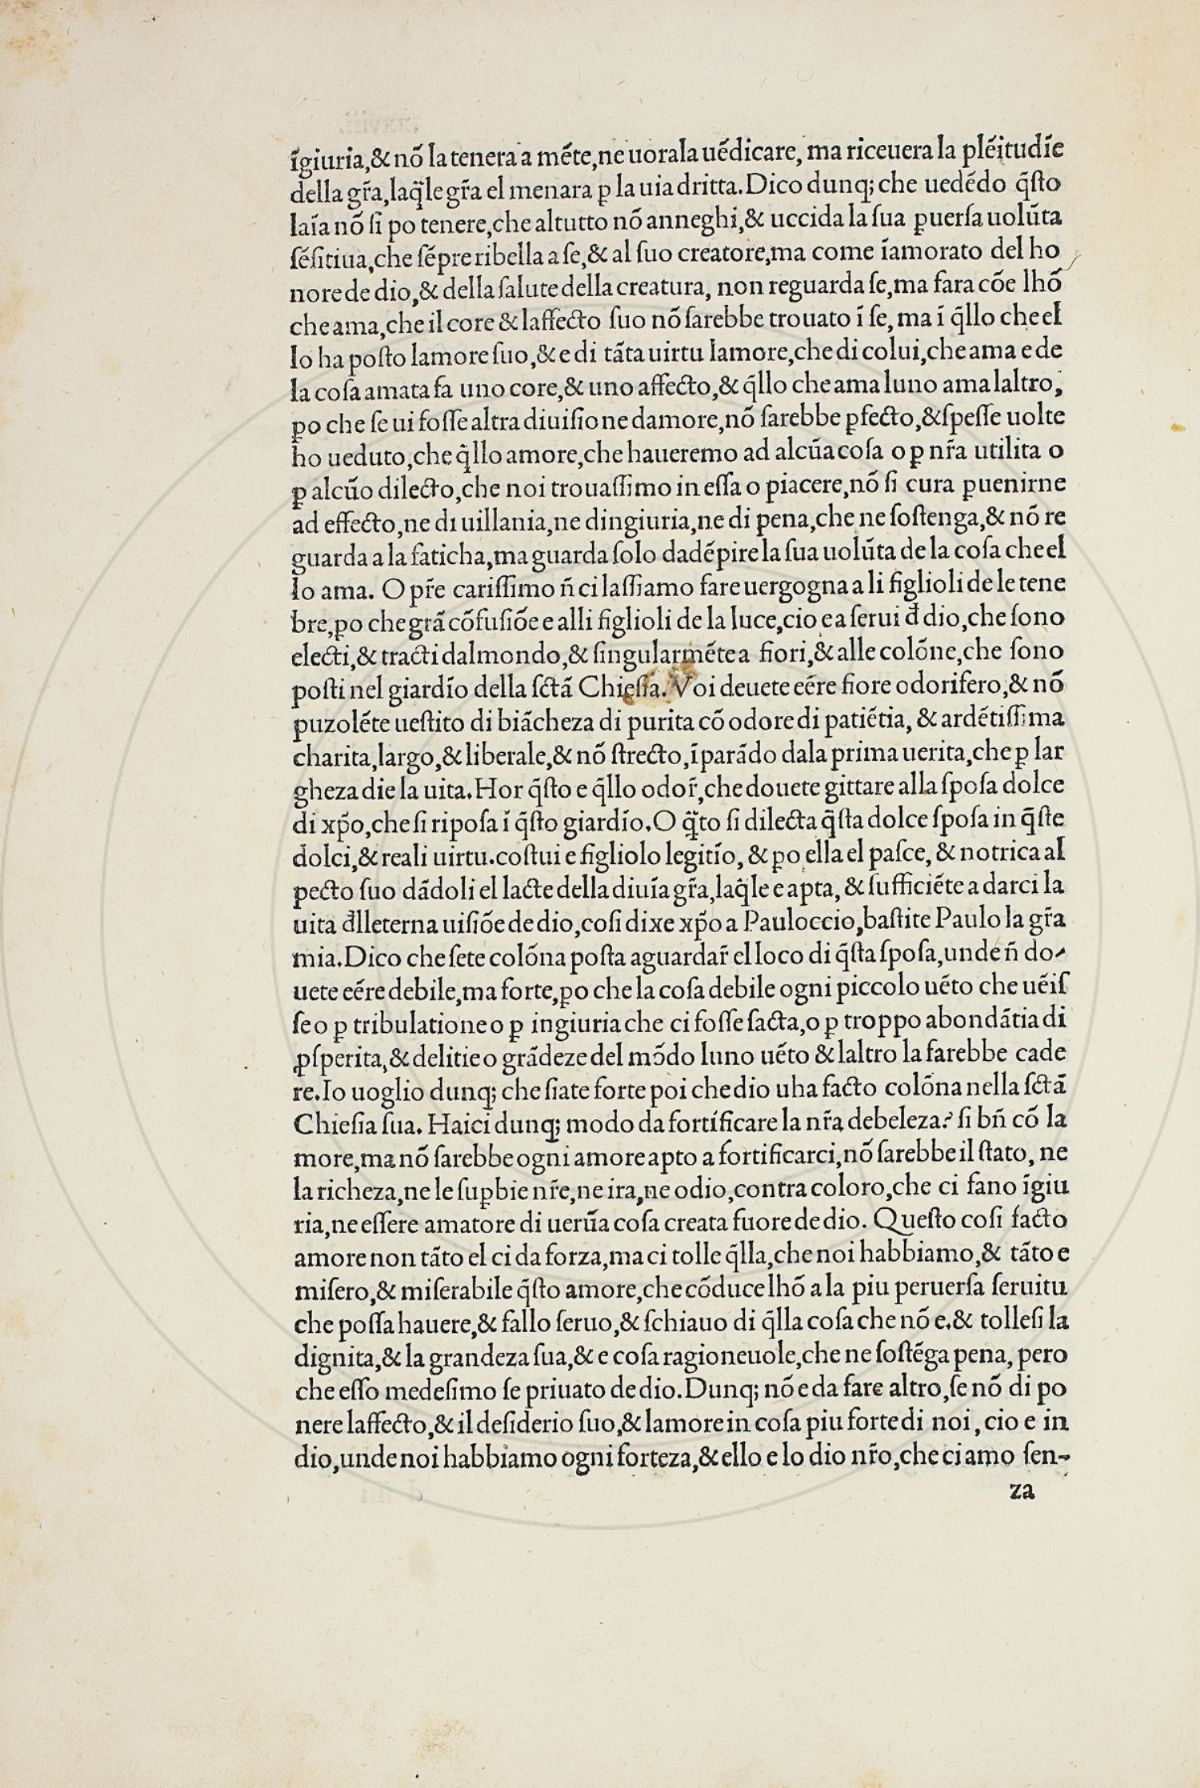 ĩgiuria,& nõ la tenera a mẽte,ne uorala uẽdicare, ma riceuera la plẽitudĩe
della gr̃a,laq̃le gr̃a el menara ꝑ la uia dritta.Dico dunq; che uedẽdo q̃sto
laĩa nõ si po tenere,che altutto nõ anneghi,& uccida la sua ꝑuersa uolũta
sẽsitiua,che sẽpre ribella a se,& al suo creatore,ma come ĩamorato del ho
nore de dio,& della salute della creatura, non reguarda se,ma fara cõe lhõ
che ama,che il core & laffecto suo nõ sarebbe trouato ĩ se, ma ĩ q̃llo che el
lo ha posto lamore suo,& e di tãta uirtu lamore,che di colui,che ama e de
la cosa amata fa uno core,& uno affecto,& q̃llo che ama luno ama laltro,
ꝑo che se ui fosse altra diuisione damore,nõ sarebbe ꝑfecto,& spesse uolte
ho ueduto,che q̃llo amore,che haueremo ad alcũa cosa o ꝑ nr̃a utilita o
ꝑ alcũo dilecto,che noi trouassimo in essa o piacere,nõ si cura ꝑuenirne
ad effecto,ne di uillania,ne dingiuria,ne di pena,che ne sostenga,& nõ re
guarda a la faticha,ma guarda solo dadẽpire la sua uolũta de la cosa che el
lo ama. O pr̃e carissimo ñ ci lassiamo fare uergogna a li figlioli de le tene
bre,ꝑo che grã cõfusiõe e alli figlioli de la luce,cio e a serui đ dio,che sono
electi,& tracti dalmondo,& singularmẽte a fiori,& alle colõne,che sono
posti nel giardĩo della sctã Chiesia. Voi deuete eẽre fiore odorifero,& nõ
puzolẽte uestito di biãcheza di purita cõ odore di patiẽtia, & ardẽtissima
charita,largo,& liberale,& nõ strecto,ĩparãdo dala prima uerita,che ꝑ lar
gheza die la uita.Hor q̃sto e q̃llo odor̃,che douete gittare alla sposa dolce
di xp̃o,che si riposa ĩ q̃sto giardĩo.O q̃to si dilecta q̃sta dolce sposa in q̃ste
dolci,& reali uirtu.costui e figliolo legitĩo, & ꝑo ella el pasce, & notrica al
pecto suo dãdoli el lacte della diuĩa gr̃a,laq̃le e apta, & sufficiẽte a darci la
uita đlleterna uisiõe de dio,cosi dixe xp̃o a Pauloccio,bastite Paulo la gr̃a
mia.Dico che sete colõna posta aguardar̃ el loco di q̃sta sposa,unde ñ do-
uete eẽre debile,ma forte,ꝑo che la cosa debile ogni piccolo uẽto che uẽis
se o ꝑ tribulatione o ꝑ ingiuria che ci fosse facta,o ꝑ troppo abondãtia di
ꝓsperita,& delitie o grãdeze del mõdo luno uẽto & laltro la farebbe cade
re.Io uoglio dunq; che siate forte poi che dio uha facto colõna nella sctã
Chiesia sua. Haici dunq; modo da fortificare la nr̃a debeleza? si bñ cõ la
more,ma nõ sarebbe ogni amore apto a fortificarci,nõ sarebbe il stato, ne
la richeza,ne le suꝑbie nr̃e,ne ira,ne odio,contra coloro,che ci fano ĩgiu
ria,ne essere amatore di uerũa cosa creata fuore de dio. Questo cosi facto
amore non tãto el ci da forza,ma ci tolle q̃lla,che noi habbiamo,& tãto e
misero,& miserabile q̃sto amore,che cõduce lhõ a la piu peruersa seruitu
che possa hauere,& fallo seruo,& schiauo di q̃lla cosa che nõ e.& tollesi la
dignita,& la grandeza sua,& e cosa ragioneuole,che ne sostẽga pena, pero
che esso medesimo se priuato de dio.Dunq; nõ e da fare altro,se nõ di po
nere laffecto,& il desiderio suo,& lamore in cosa piu forte di noi, cio e in
dio,unde noi habbiamo ogni forteza,& ello e lo dio nr̃o,che ci amo sen-
za